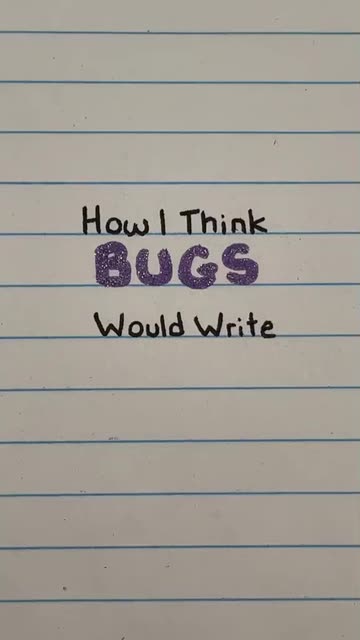 How I Think
BUGS
Would Write